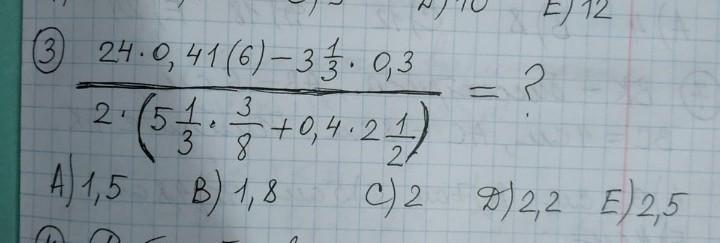 D) 10 E) 12
③ 24·0,41(6) − 3 1/3 · 0,3
2·(5 1/3 · 3/8 + 0,4·2 1/2) = ?
A) 1,5 B) 1,8 C) 2 D) 2,2 E) 2,5